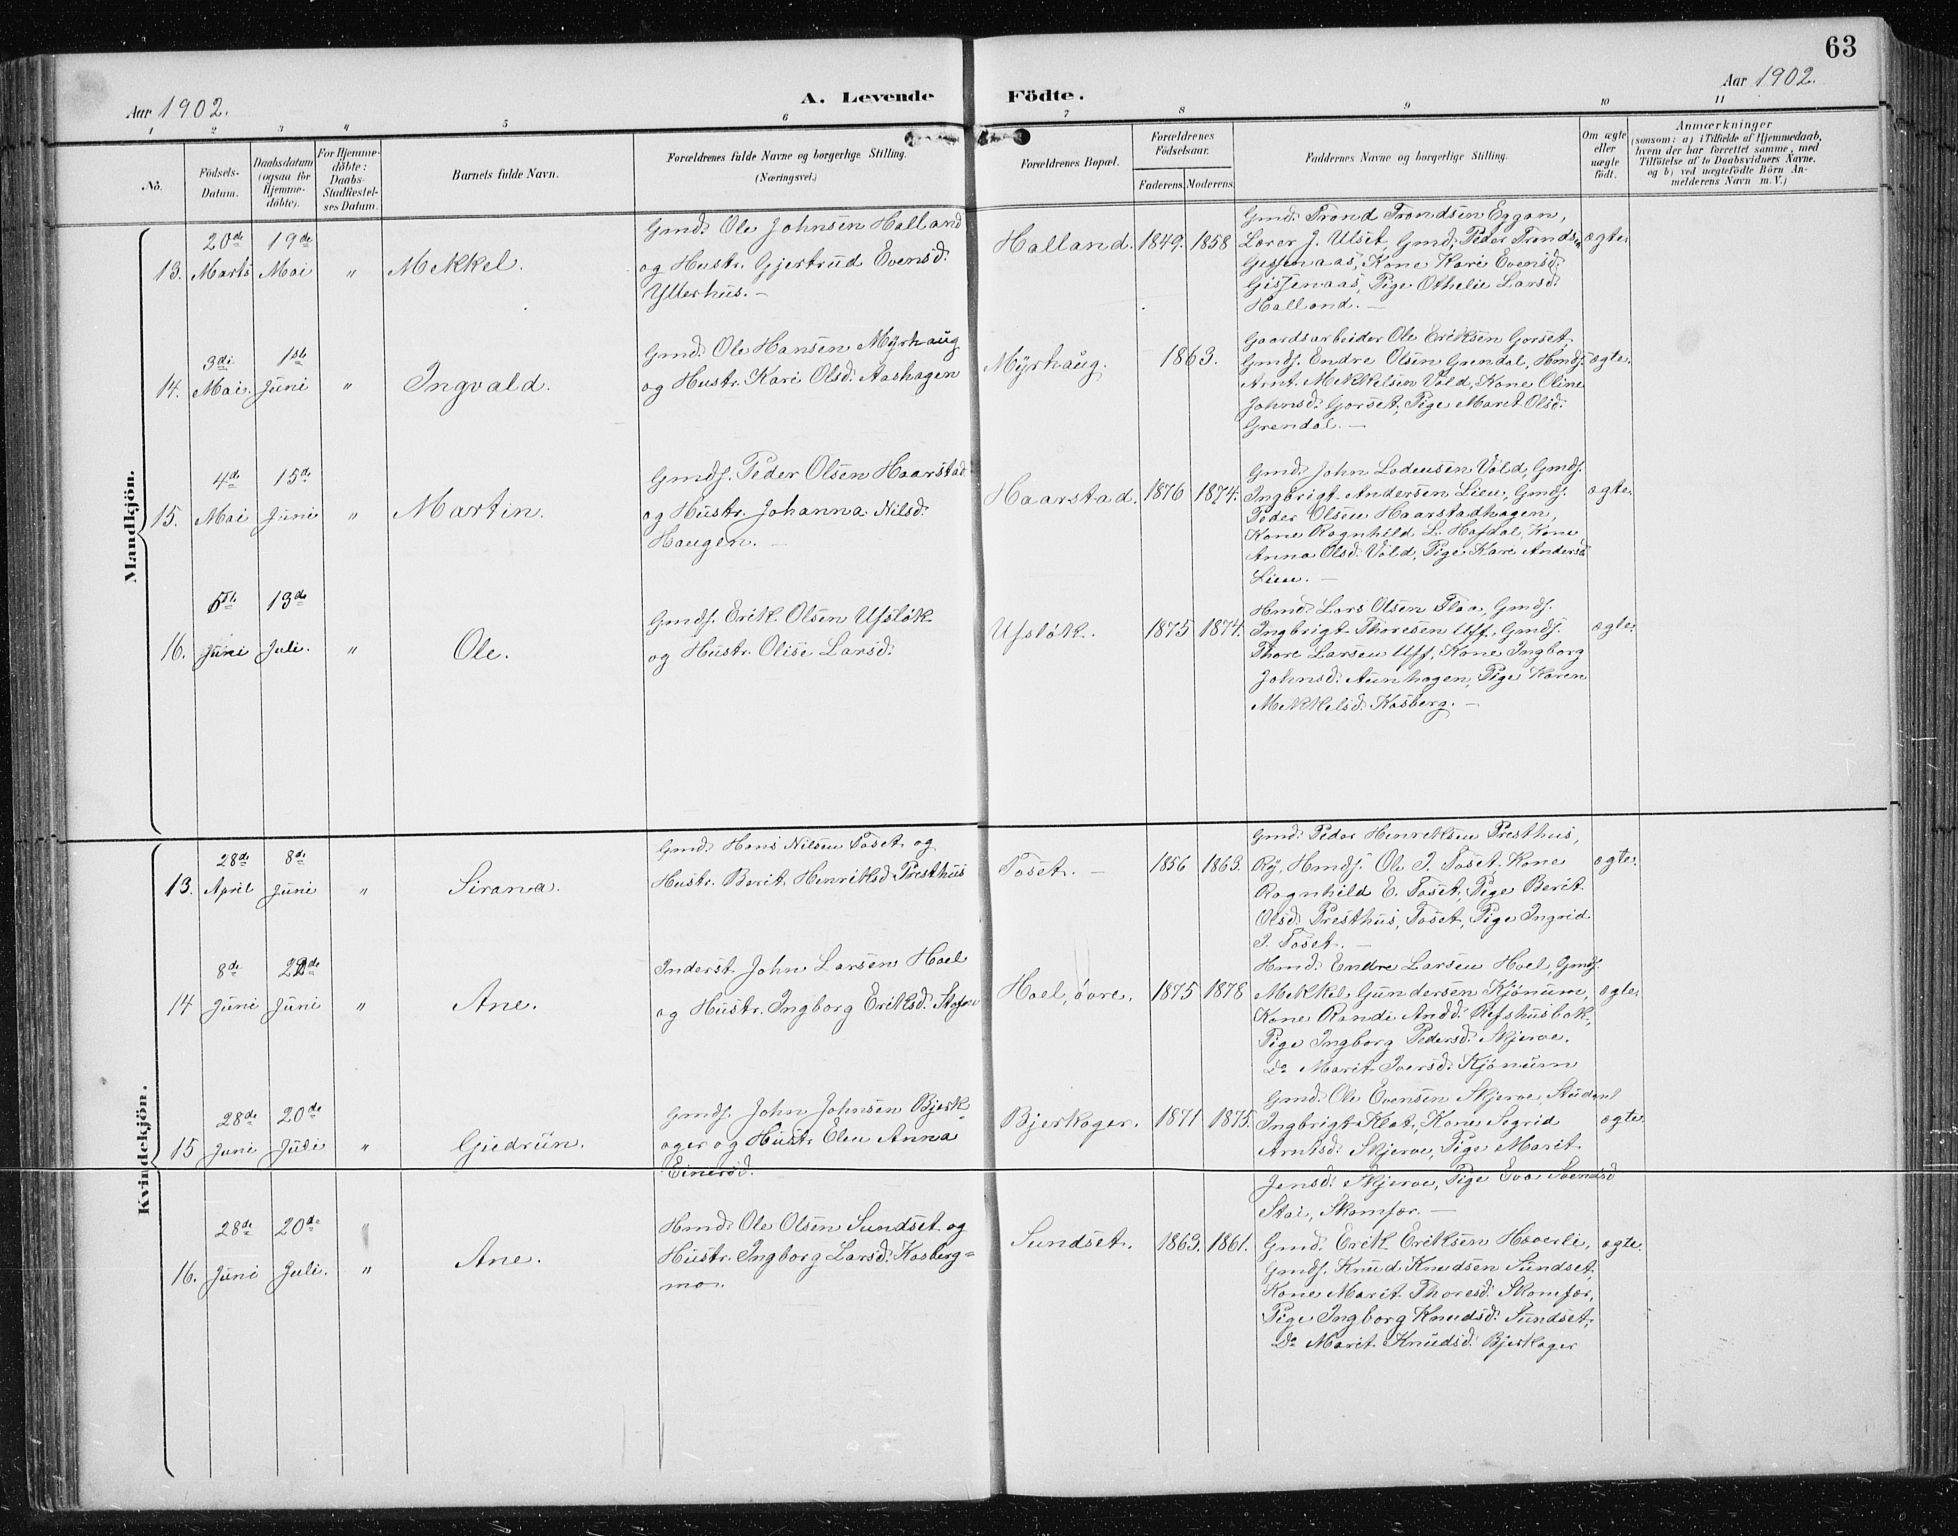 63
Aar 1902.
A. Levende Födte.
Aar 1902.
1 2 3 4 5 6 7 8 9 10 11
No.
Födsels-
Datum.
Daabsdatum
(ogsaa for
Hjemme-
döbte).
For Hjemme-
döbte:
Daabs-
Stadfæstel-
ses Datum.
Barnets fulde Navn.
Forældrenes fulde Navne og borgerlige Stilling.
(Næringsvei.)
Forældrenes Bopæl.
Forældrenes
Födselsaar.
Faderens. Moderens.
Faddernes Navne og borgerlige Stilling.
Om ægte
eller
uægte
födt.
Anmærkninger
(saasom: a) i Tilfælde af Hjemmedaab,
hvem der har forrettet samme, med
Tilföielse af to Daabsvidners Navne,
og b) ved uægtefödte Börn An-
melderens Navn m. V.)
Mandkjön.
13.
20de
Marts
19de
Mai
"
Mekkel.
Gmd. Ole Johnsen Halland
og Hustr. Gjertrud Evensd.
Ytterhus. –
Halland. 1849. 1858
Gmd. Trond Trondsen Eggan,
Lærer J. Ulset, Gmd. Peder Trondsen
Gisnaas, Kone Kari Evensd.
Gisnaas, Pige Othelie Larsd.
Halland. –
ægte
14.
3di
Mai.
1ste
Juni
"
Ingvald.
Gmd. Ole Hansen Myrhaug
og Hustr. Kari Olsd. Aashagen
Myrhaug. 1863.
Gaardsarbeider Ole Eriksen Gorset,
Gmdf. Endre Olsen Grendal, Hmdf.
Arnt Mekkelsen Vold, Kone Oline
Johnsd. Gorset, Pige Marit Olsd.
Grendal. –
ægte.
15.
4de
Mai
15de
Juni
"
Martin.
Gmdf. Peder Olsen Haarstad
og Hustr. Johanna Nilsd.
Haugen. –
Haarstad. 1876 1874.
Gmd. John Lodensen Vold, Gmdf.
Ingbrigt Andersen Lien, Gmdf.
Peder Olsen Haarstadhagen,
Kone Ragnhild L. Hafdal, Kone
Anna Olsd. Vold, Pige Kari Andersd.
Lien. –
ægte.
16.
5te
Juni
13de
Juli.
"
Ole.
Gmdf. Erik Olsen Ufsløk
og Hustr. Olise Larsd.
Ufsløk. 1875 1874.
Hmd. Lars Olsen Flaa, Gmdf.
Ingbrigt Thoresen Uff, Gmdf.
Thore Larsen Uff, Kone Ingborg
Johnsd. Aunhagen, Pige Karen
Mekkelsd. Kosberg. –
ægte.
Kvindekjön.
13.
28de
April
8de
Juni
"
Sirana.
Gmd. Hans Nilsen Toset og
Hustr. Berit Henriksd. Presthus
Toset. – 1856 1863.
Gmd. Peder Henriksen Presthus,
Ry, Hmdf. Ole I. Toset, Kone
Ragnhild E. Toset, Pige Berit
Olsd. Presthus, Toset, Pige Ingrid
I. Toset. –
ægte.
14
8de
Juni
Juni
"
Ane.
Inderst John Larsen Hoel
og Hustr. Ingborg Eriksd.
Hoel, øvre. 1875 1878
Hmd. Endre Larsen Hoel, Gmdf.
Mekkel Gundersen Kjønum,
Kone Randi Andd. Refshusbak,
Pige Ingborg Pedersd. Skjerve.
Do Marit Iversd. Kjønum
ægte
15
28de
Juni
20de
Juli
"
Gudrun.
Gmdf. John Johnsen Bjerk-
ager og Hustr. Elen Anna
Einersd.
Bjerkager. 1871 1875.
Gmd. Ole Evensen Skjerve, Student
Ingbrigt Klat, Kone Sigrid
Arntsd. Skjerve, Pige Marit
Jensd. Skjerve, Pige Eva Svendsd
Stai, Skamfær. –
ægte
16.
28de
Juni
20de
Juli.
"
Ane.
Hmd. Ole Olsen Sundset og
Hustr. Ingborg Larsd. Kosberg=
mo.
Sundset. 1863. 1861.
Gmd. Erik Eriksen Haverli,
Gmdf. Knud Knudsen Sundset,
Kone Marit Thoresd. Skamfær,
Pige Ingborg Knudsd. Sundset,
Do Marit Knudsd. Bjerkager
ægte.